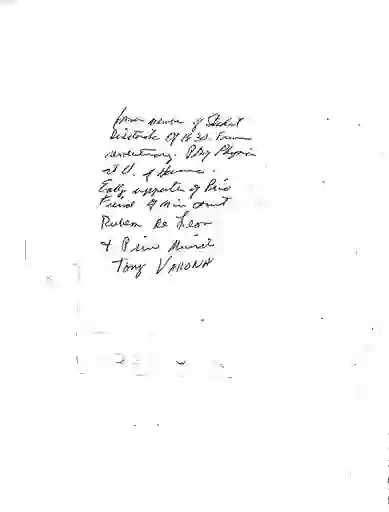 former member of Student
Directorate of 1930. Former
revolutionary. Phys
at U. of Havana.
Early supporter of Prio
Friend of Min
Ruben de Leon
+ Prime
Tony VARONA